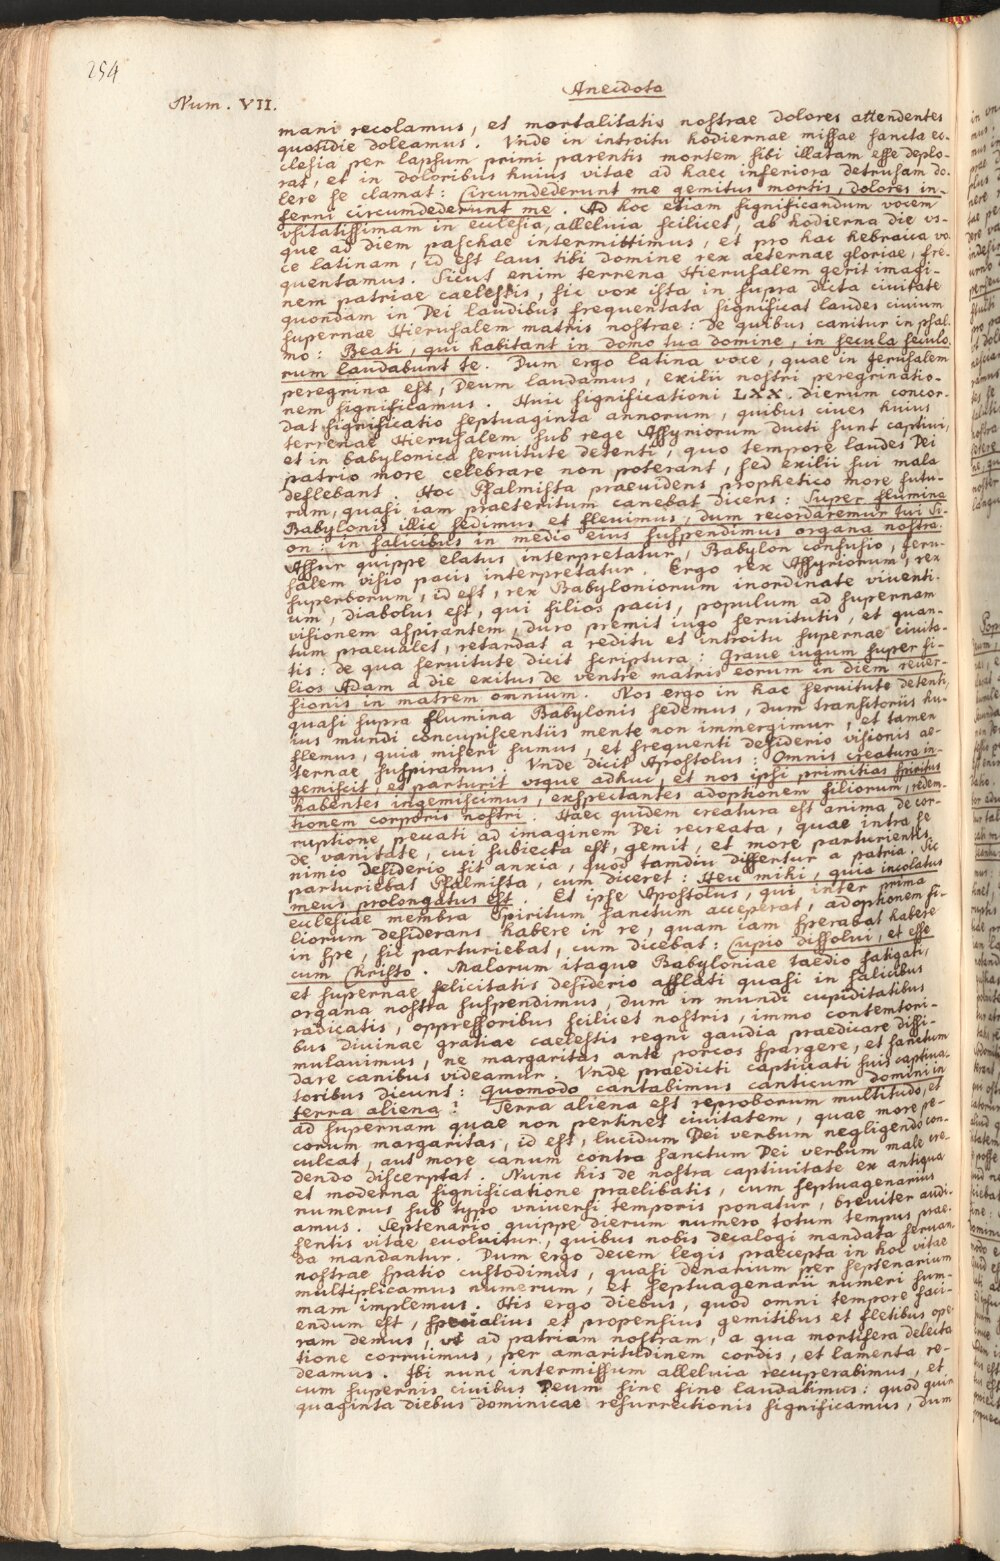 254
Anecdota
Num. VII.
mani recolamus, et mortalitatis nostrae dolores attendentes
quotidie doleamus. Vnde in introitu hodiernae missae sancta ec-
clesia per lapsum primi parentis mortem sibi illatam esse deplo-
rat, et in doloribus huius vitae ad haec inferiora detrusam do-
lere se clamat: Circumdederunt me gemitus mortis, dolores in-
ferni circumdederunt me. Ad hoc etiam significandum vocem
vsitatissimam in ecclesia, alleluia scilicet, ab hodierna die vs-
que ad diem paschae intermittimus, et pro hac hebraica vo-
ce latinam, id est laus tibi domine rex aeternae gloriae, fre-
quentamus. Sicut enim terrena Hierusalem gerit imagi-
nem patriae caelestis, sic vox ista in supra dicta ciuitate
quondam in Dei laudibus frequentata significat laudes ciuium
supernae Hierusalem matris nostrae: de quibus canitur in psal-
mo: Beati, qui habitant in domo tua domine, in secula seculo-
rum laudabunt te. Dum ergo latina voce, quae in Jerusalem
peregrina est, Deum laudamus, exilii nostri peregrinatio-
nem significamus. Huic significationi LXX. dierum concor-
dat significatio septuaginta annorum, quibus ciues huius
terrenae Hierusalem sub rege Assyriorum ducti sunt captiui,
et in babylonica seruitute detenti, quo tempore laudes Dei
patrio more celebrare non poterant, sed exilii sui mala
deflebant. Hoc Psalmista praeuidens prophetico more futu-
rum, quasi iam praeteritum canebat dicens: Super flumina
Babylonis illic sedimus et fleuimus, dum recordaremur tui Si-
on: in salicibus in medio eius suspendimus organa nostra.
Assur quippe elatus interpretatur, Babylon confusio, Jeru-
salem visio pacis interpretatur. Ergo rex Assyriorum, rex
superborum, id est, rex Babyloniorum inordinate viuenti-
um, diabolus est, qui filios pacis, populum ad supernam
visionem aspirantem, duro premit iugo seruitutis, et quan-
tum praeualet, retardat a reditu et introitu supernae ciuita-
tis: de qua seruitute dicit scriptura: Graue iugum super fi-
lios Adam a die exitus de ventre matris eorum in diem reuer-
sionis in matrem omnium. Nos ergo in hac seruitute detenti,
quasi supra flumina Babylonis sedemus, dum transitoriis hu-
ius mundi concupiscentiis mente non immergimur, et tamen
flemus, quia miseri sumus, et frequenti desiderio visionis ae-
ternae suspiramus. Vnde dicit Apostolus: Omnis creatura in-
gemiscit, et parturit vsque adhuc, et nos ipsi primitias spiritus
habentes ingemiscimus, exspectantes adoptionem filiorum, redem-
tionem corporis nostri. Haec quidem creatura est anima de cor-
ruptione peccati ad imaginem Dei recreata, quae intra se
de vanitate, cui subiecta est, gemit, et more parturientis
nimio desiderio fit anxia, quod tamdiu differtur a patria. Sic
parturiebat Psalmista, cum diceret: Heu mihi, quia incolatus
meus prolongatus est. Et ipse Apostolus, qui inter prima
ecclesiae membra Spiritum sanctum acceperat, adoptionem fi-
liorum desiderans habere in re, quam iam sperabat habere
in spe, sic parturiebat, cum dicebat: Cupio dissolui, et esse
cum Christo. Malorum itaque Babyloniae taedio fatigati,
et supernae felicitatis desiderio afflati quasi in salicibus
organa nostra suspendimus, dum in mundi cupiditatibus
radicatis, oppressoribus scilicet nostris, immo contemtori-
bus diuinae gratiae caelestis regni gaudia praedicare dissi-
mulauimus, ne margaritas ante porcos spargere, et sanctum
dare canibus videamur. Vnde praedicti captiuati suis captiua-
toribus dicunt: Quomodo cantabimus canticum domini in
terra aliena? Terra aliena est reproborum multitudo, et
ad supernam quae non pertinet ciuitatem, quae more por-
corum margaritas, id est, lucidum Dei verbum negligendo con-
culcat, aut more canum contra sanctum Dei verbum male cre-
dendo discerptat. Nunc his de nostra captiuitate ex antiqua
et moderna significatione praelibatis, cum septuagenarius
numerus sub typo vniuersi temporis ponatur, breuiter audi-
amus. Septenario quippe dierum numero totum tempus prae-
sentis vitae euoluitur, quibus nobis decalogi mandata seruan-
da mandantur. Dum ergo decem legis praecepta in hoc vitae
nostrae spatio custodimus, quasi denarium per septenarium
multiplicamus numerum, et septuagenarii numeri sum-
mam implemus. His ergo diebus, quod omni tempore faci-
endum est, specialius et propensius gemitibus et fletibus ope-
ram demus, vt ad patriam nostram, a qua mortifera delecta-
tione corruimus, per amaritudinem cordis, et lamenta re-
deamus. Ibi nunc intermissum alleluia recuperabimus, et
cum supernis ciuibus Deum sine fine laudabimus: quod quin-
quaginta diebus dominicae resurrectionis significamus, dum